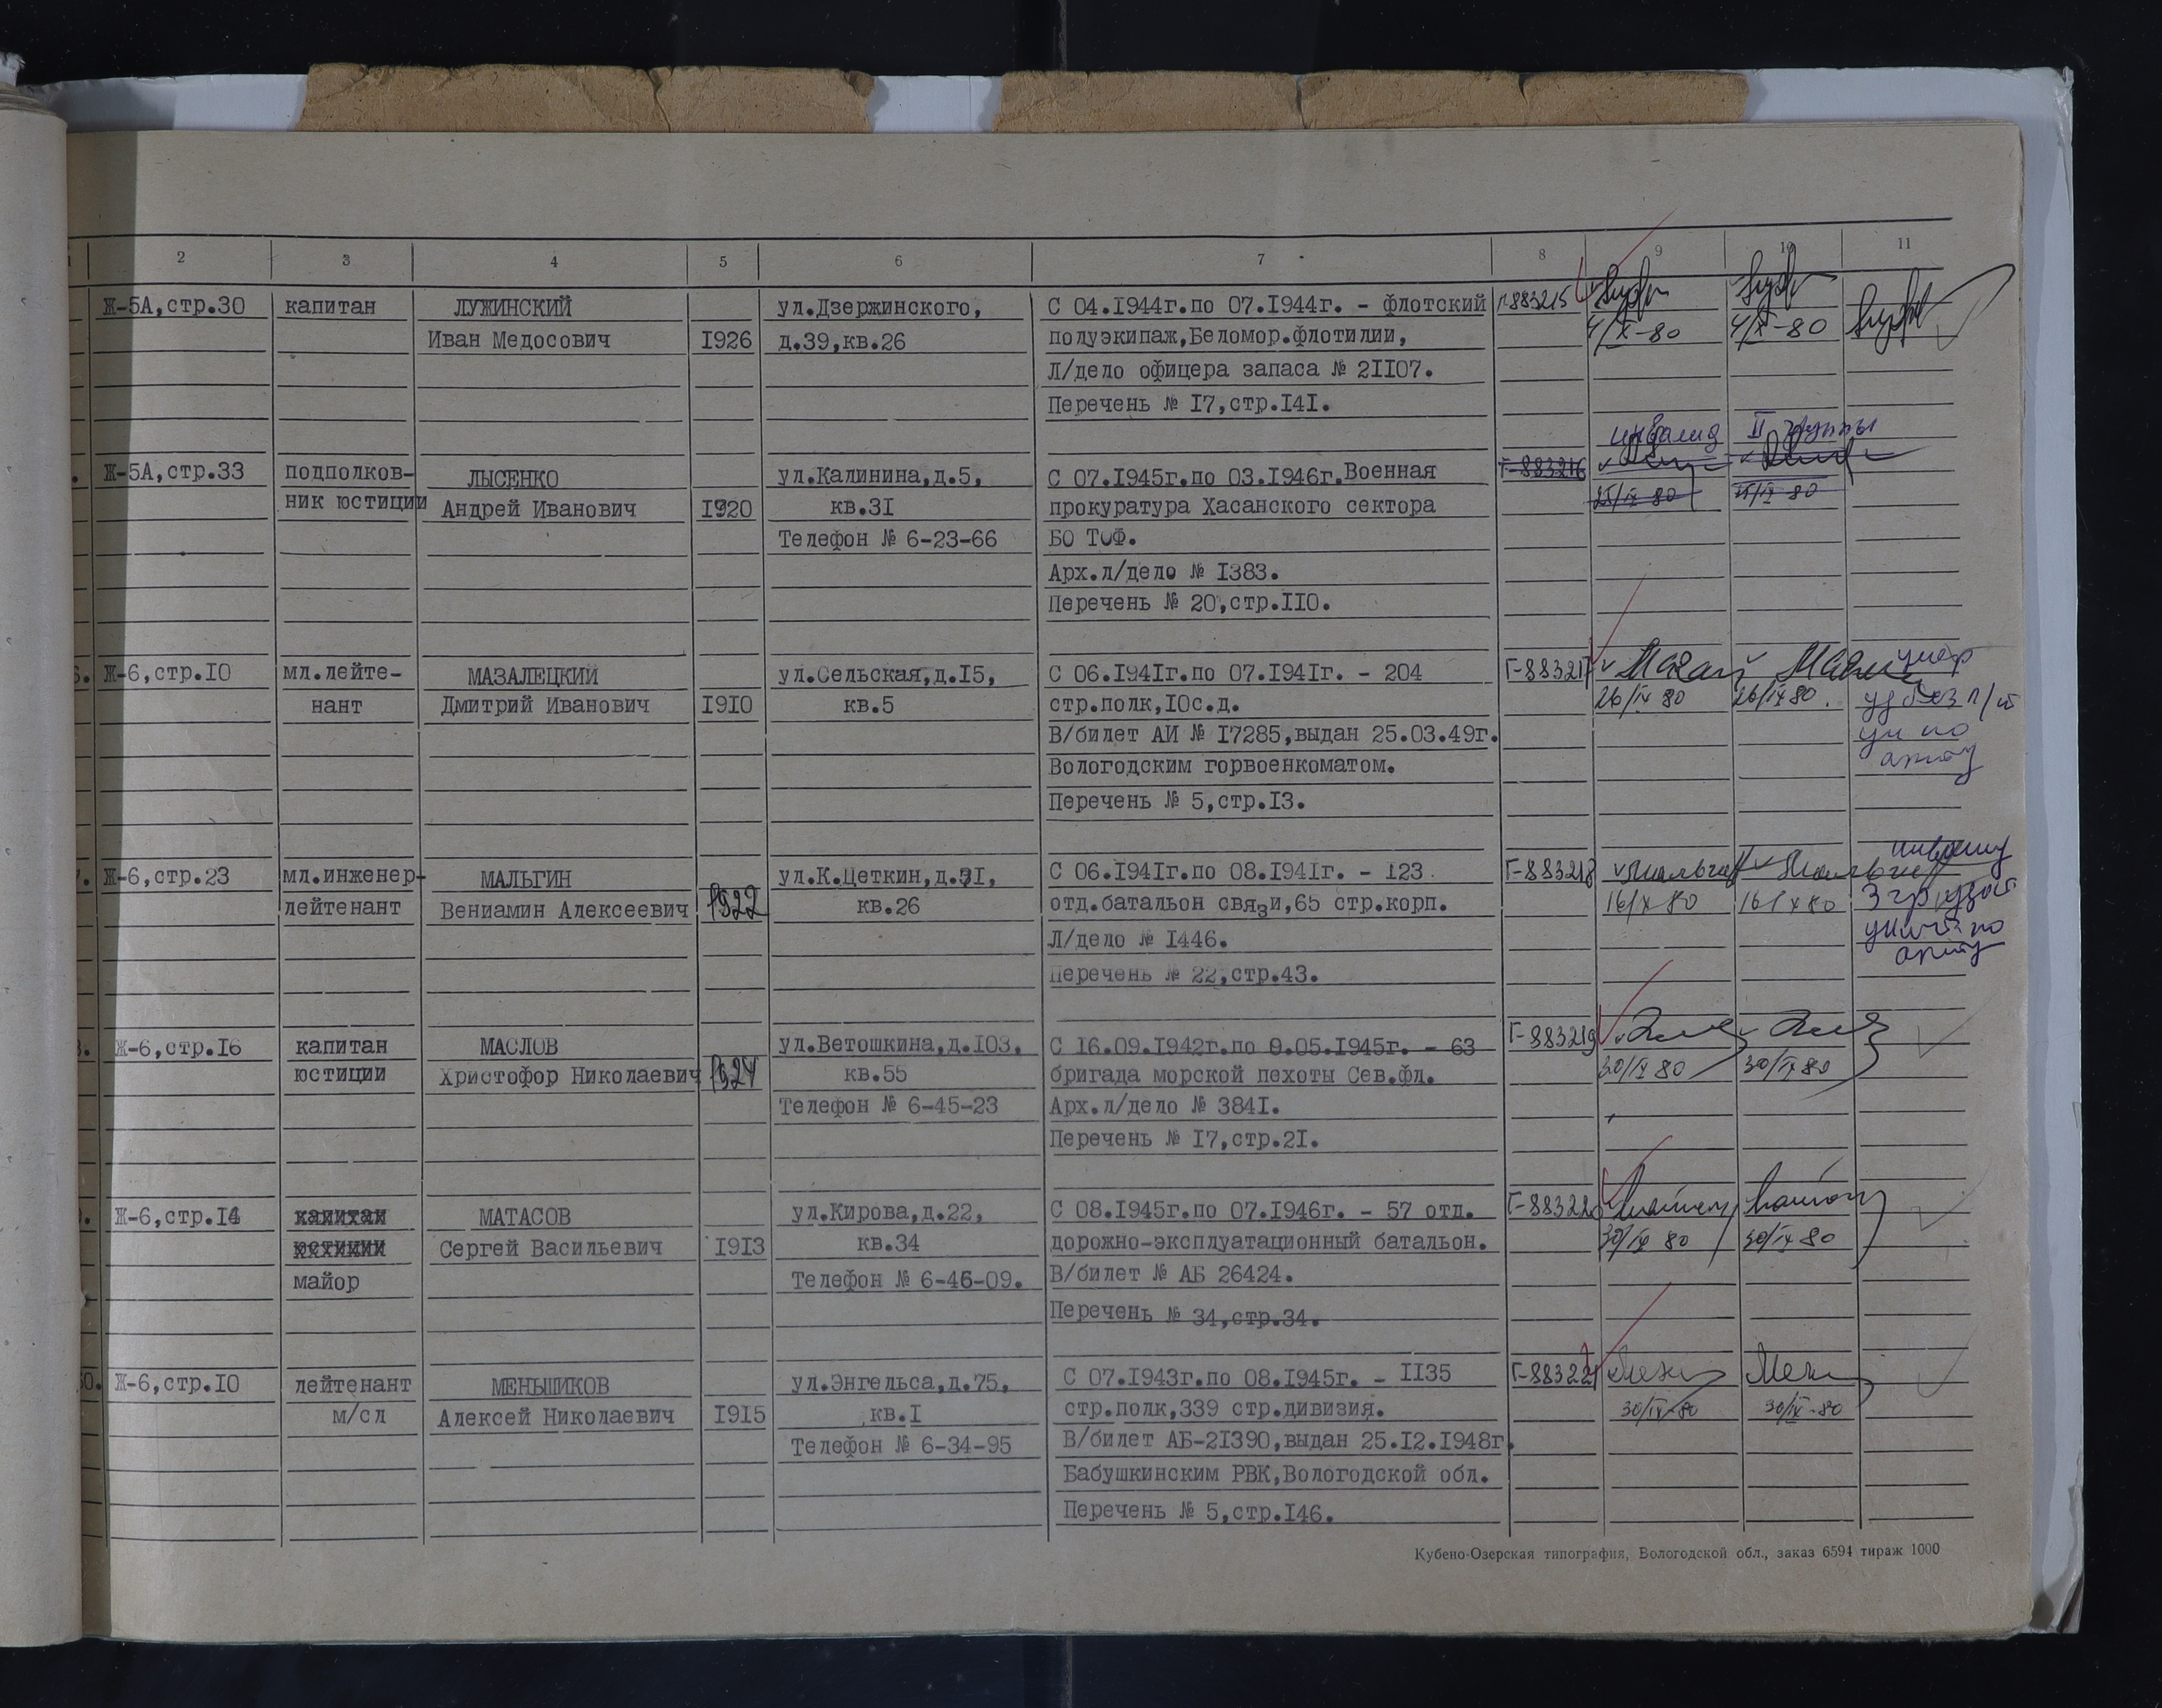 1 2 3 4 5 6 7 8 9 10 11
Ж-5А,стр.30 капитан ЛУЖИНСКИЙ ул.Дзержинского, С 04.I944г.по 07.I944г. - флотский Г-883215
Иван Медосович I926 д.39,кв.26 полуэкипаж,Беломор.флотилии, 4/X-80 4/X-80
Л/дело офицера запаса № 2II07.
Перечень № I7,стр.I4I.
инвалид II группы
Ж-5А,стр.33 подполков- ЛЫСЕНКО ул.Калинина,д.5, С 07.I945г.по 03.I946г.Военная Г-883216
ник юстиции Андрей Иванович I920 кв.3I прокуратура Хасанского сектора 25/IX 80 25/IX 80
Телефон № 6-23-66 БО ТОФ.
Арх.л/дело № I383.
Перечень № 20,стр.II0.
6. Ж-6,стр.I0 мл.лейте- МАЗАЛЕЦКИЙ ул.Сельская,д.I5, С 06.I94Iг.по 07.I94Iг. - 204 Г-883217 умер
нант Дмитрий Иванович I9I0 кв.5 стр.полк,I0с.д. 26/IX 80 26/IX 80.
В/билет АИ № I7285,выдан 25.03.49г.
Вологодским горвоенкоматом.
Перечень № 5,стр.I3.
7. Ж-6,стр.23 мл.инженер- МАЛЬГИН ул.К.Цеткин,д.3I, С 06.I94Iг.по 08.I94Iг. - I23 Г-883218
лейтенант Вениамин Алексеевич 1922 кв.26 отд.батальон связи,65 стр.корп. 16/X 80 16/X 80
Л/дело № I446.
Перечень № 22,стр.43.
8. Ж-6,стр.I6 капитан МАСЛОВ ул.Ветошкина,д.I03, С I6.09.I942г.по 9.05.I945г. - 63 Г-883219
юстиции Христофор Николаевич 1924 кв.55 бригада морской пехоты Сев.фл. 30/IX 80 30/IX 80
Телефон № 6-45-23 Арх.л/дело № 384I.
Перечень № I7,стр.2I.
9. Ж-6,стр.I4 капитан МАТАСОВ ул.Кирова,д.22, С 08.I945г.по 07.I946г. - 57 отд. Г-883220
юстиции Сергей Васильевич I9I3 кв.34 дорожно-эксплуатационный батальон. 30/IX 80 30/IX 80
майор Телефон № 6-46-09. В/билет № АБ 26424.
Перечень № 34,стр.34.
50. Ж-6,стр.I0 лейтенант МЕНЬШИКОВ ул.Энгельса,д.75, С 07.I943г.по 08.I945г. - II35 Г-883221
м/сл Алексей Николаевич I9I5 кв.I стр.полк,339 стр.дивизия. 30/IX-80 30/IX-80
Телефон № 6-34-95 В/билет АБ-2I390,выдан 25.I2.I948г.
Бабушкинским РВК,Вологодской обл.
Перечень № 5,стр.I46.
Кубено-Озерская типография, Вологодской обл., заказ 6594 тираж 1000